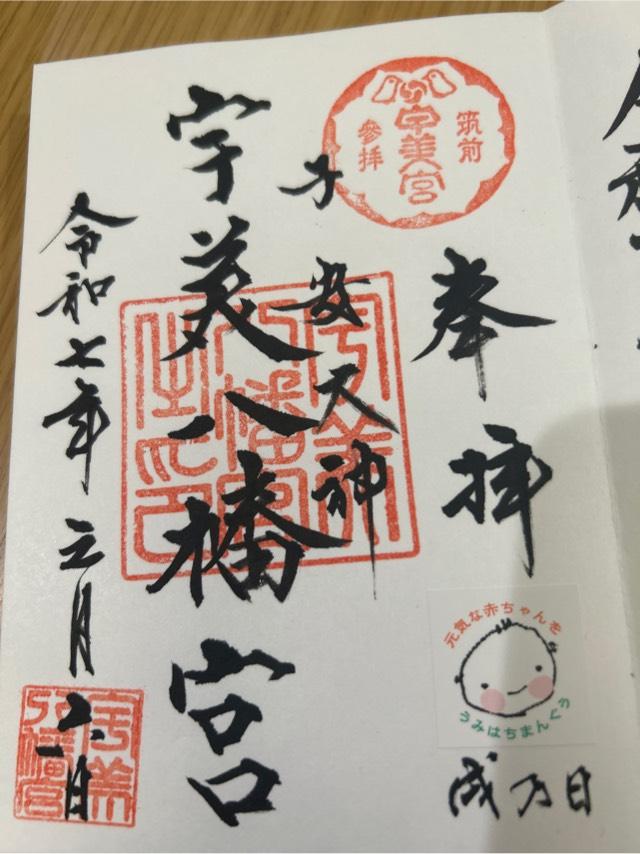 奉拝
元気な赤ちゃんを
うみはちまんぐう
戌乃日
筑前
宇美宮
參拝
子安大神
宇美八幡宮
宇美
八幡宮
之印
令和七年三月六日
宇美
八幡宮